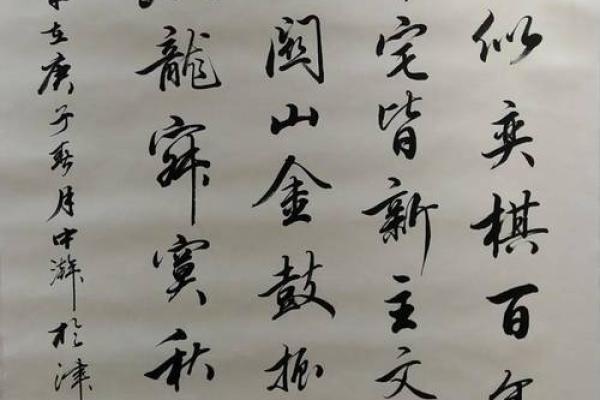 似奕棋百年
宅皆新主文
關山金鼓振
龍寂寞秋
在庚子春月中澣於津